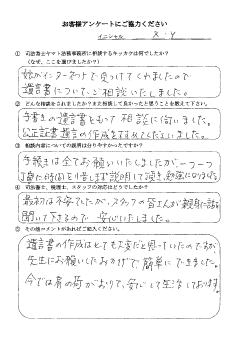 お客様アンケートにご協力ください
イニシャル
① 司法書士ヤマト法務事務所に相談するキッカケは何でしたか？
（なぜ、ここを選びましたか？）
娘がインターネットで見つけてくれましたので
遺言書について、ご相談いたしました。
② どんな相談をされましたか？また相談して良かったと思うことを教えて下さい。
手書きの遺言書をもって相談に伺いました。
公正証書遺言の作成をすすめていただきました。
③ 相談内容についての説明は分りやすかったですか？
手続きは全てお願いいたしましたが、一つ一つ
丁寧に時間を惜しまず説明して頂き、勉強になりました
④ 司法書士、税理士、スタッフの対応はどうでしたか？
最初は不安でしたが、スタッフの皆さんが親身に話を
聞いて下さるので安心いたしました。
⑤ その他コメントがあればご記入ください。
遺言書の作成はとても大変だと思っていたのですが、
先生にお願いしたおかげで簡単にできました。
今では肩の荷がおりて、安心して生活しております。